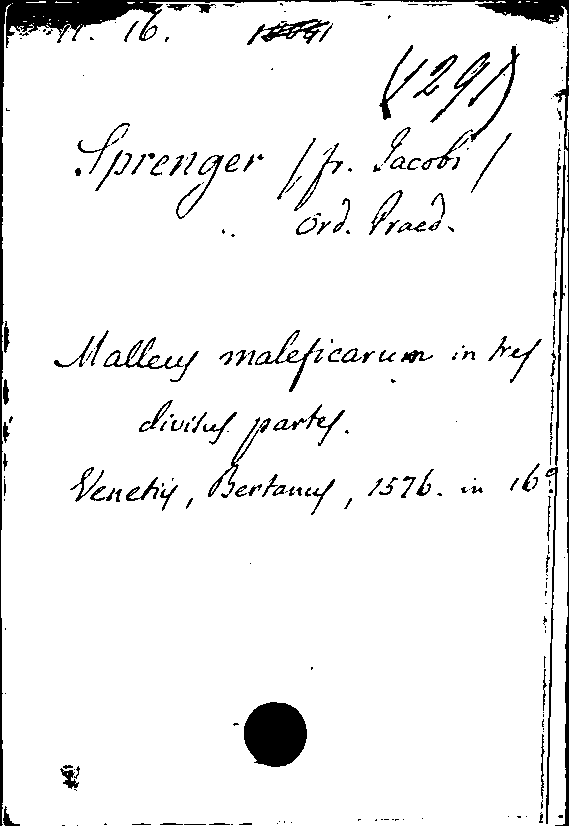 16.
(1291)
Sprenger /fr. Jacobi/
Ord. Praed.
Malleus maleficarum in tres
divisus partes.
Venetiis, Bertanus, 1576. in 16º